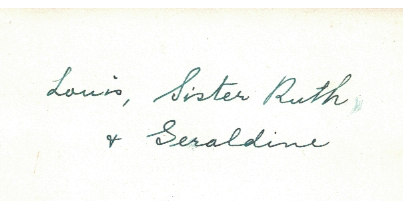 Louis, Sister Ruth
& Geraldine